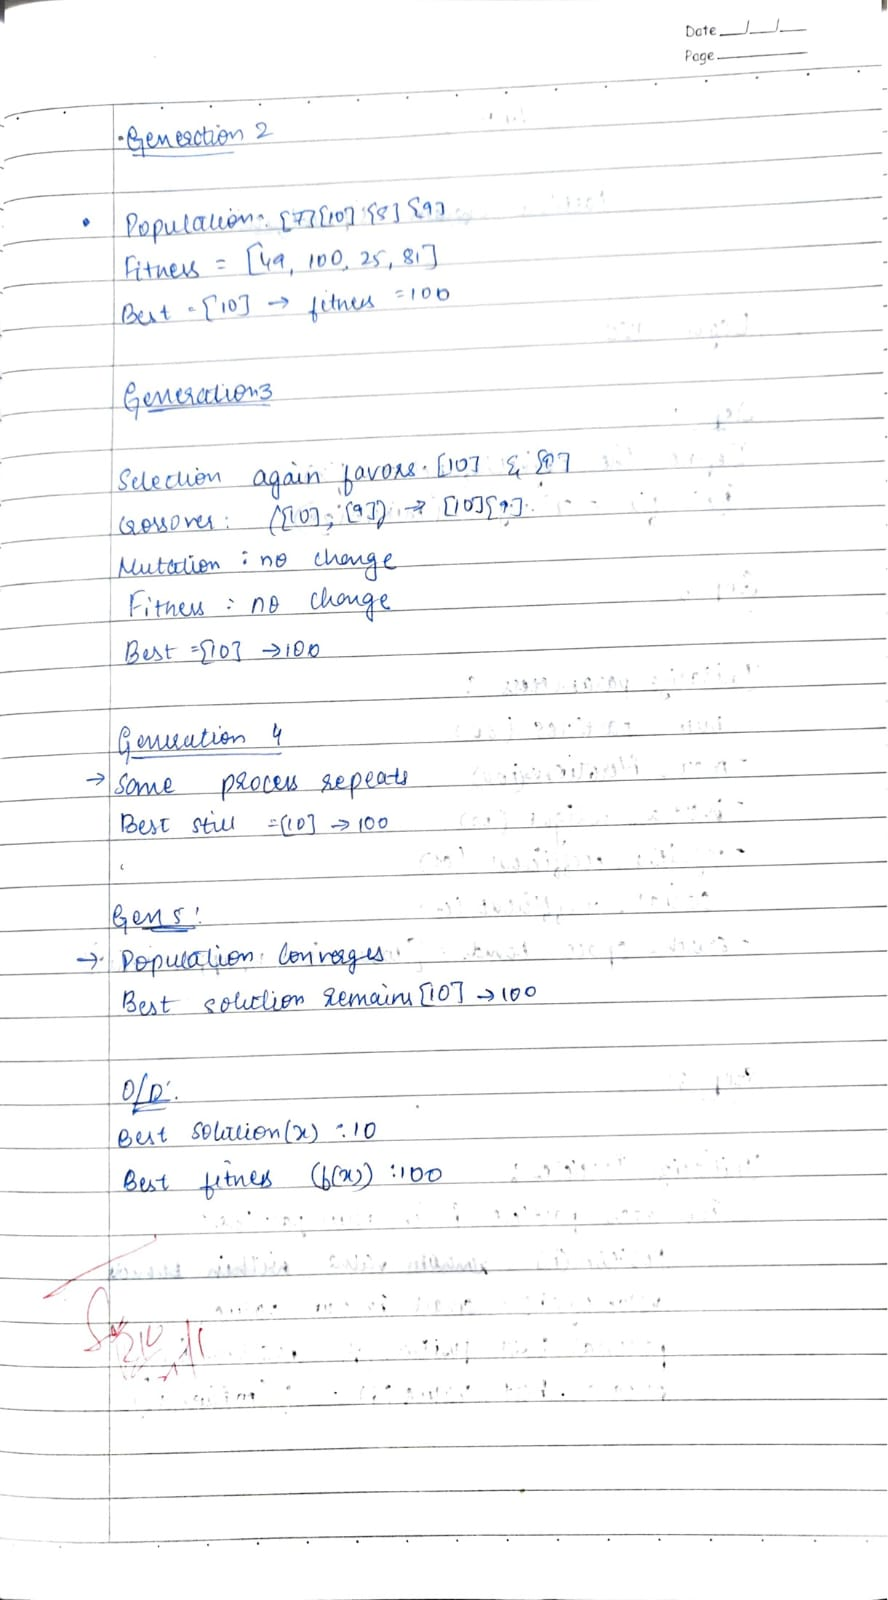 Date
Page
Generation 2
Population: [7] [10] [5] [9]
Fitness = [49, 100, 25, 81]
Best = [10] → fitness = 100
Generation 3
Selection again favors [10] & [9]
Crossover: ([10], [9]) → [10] [9].
Mutation : no change
Fitness : no change
Best = [10] → 100
Generation 4
→ Same process repeats
Best still = [10] → 100
Gen 5:
→ Population Converges
Best solution remains [10] → 100
O/P:
Best Solution (x) : 10
Best fitness (f(x)) : 100